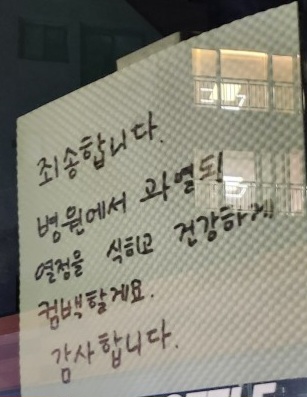 죄송합니다.
병원에서 과열된
열정을 식히고 건강하게
컴백할게요.
감사합니다.